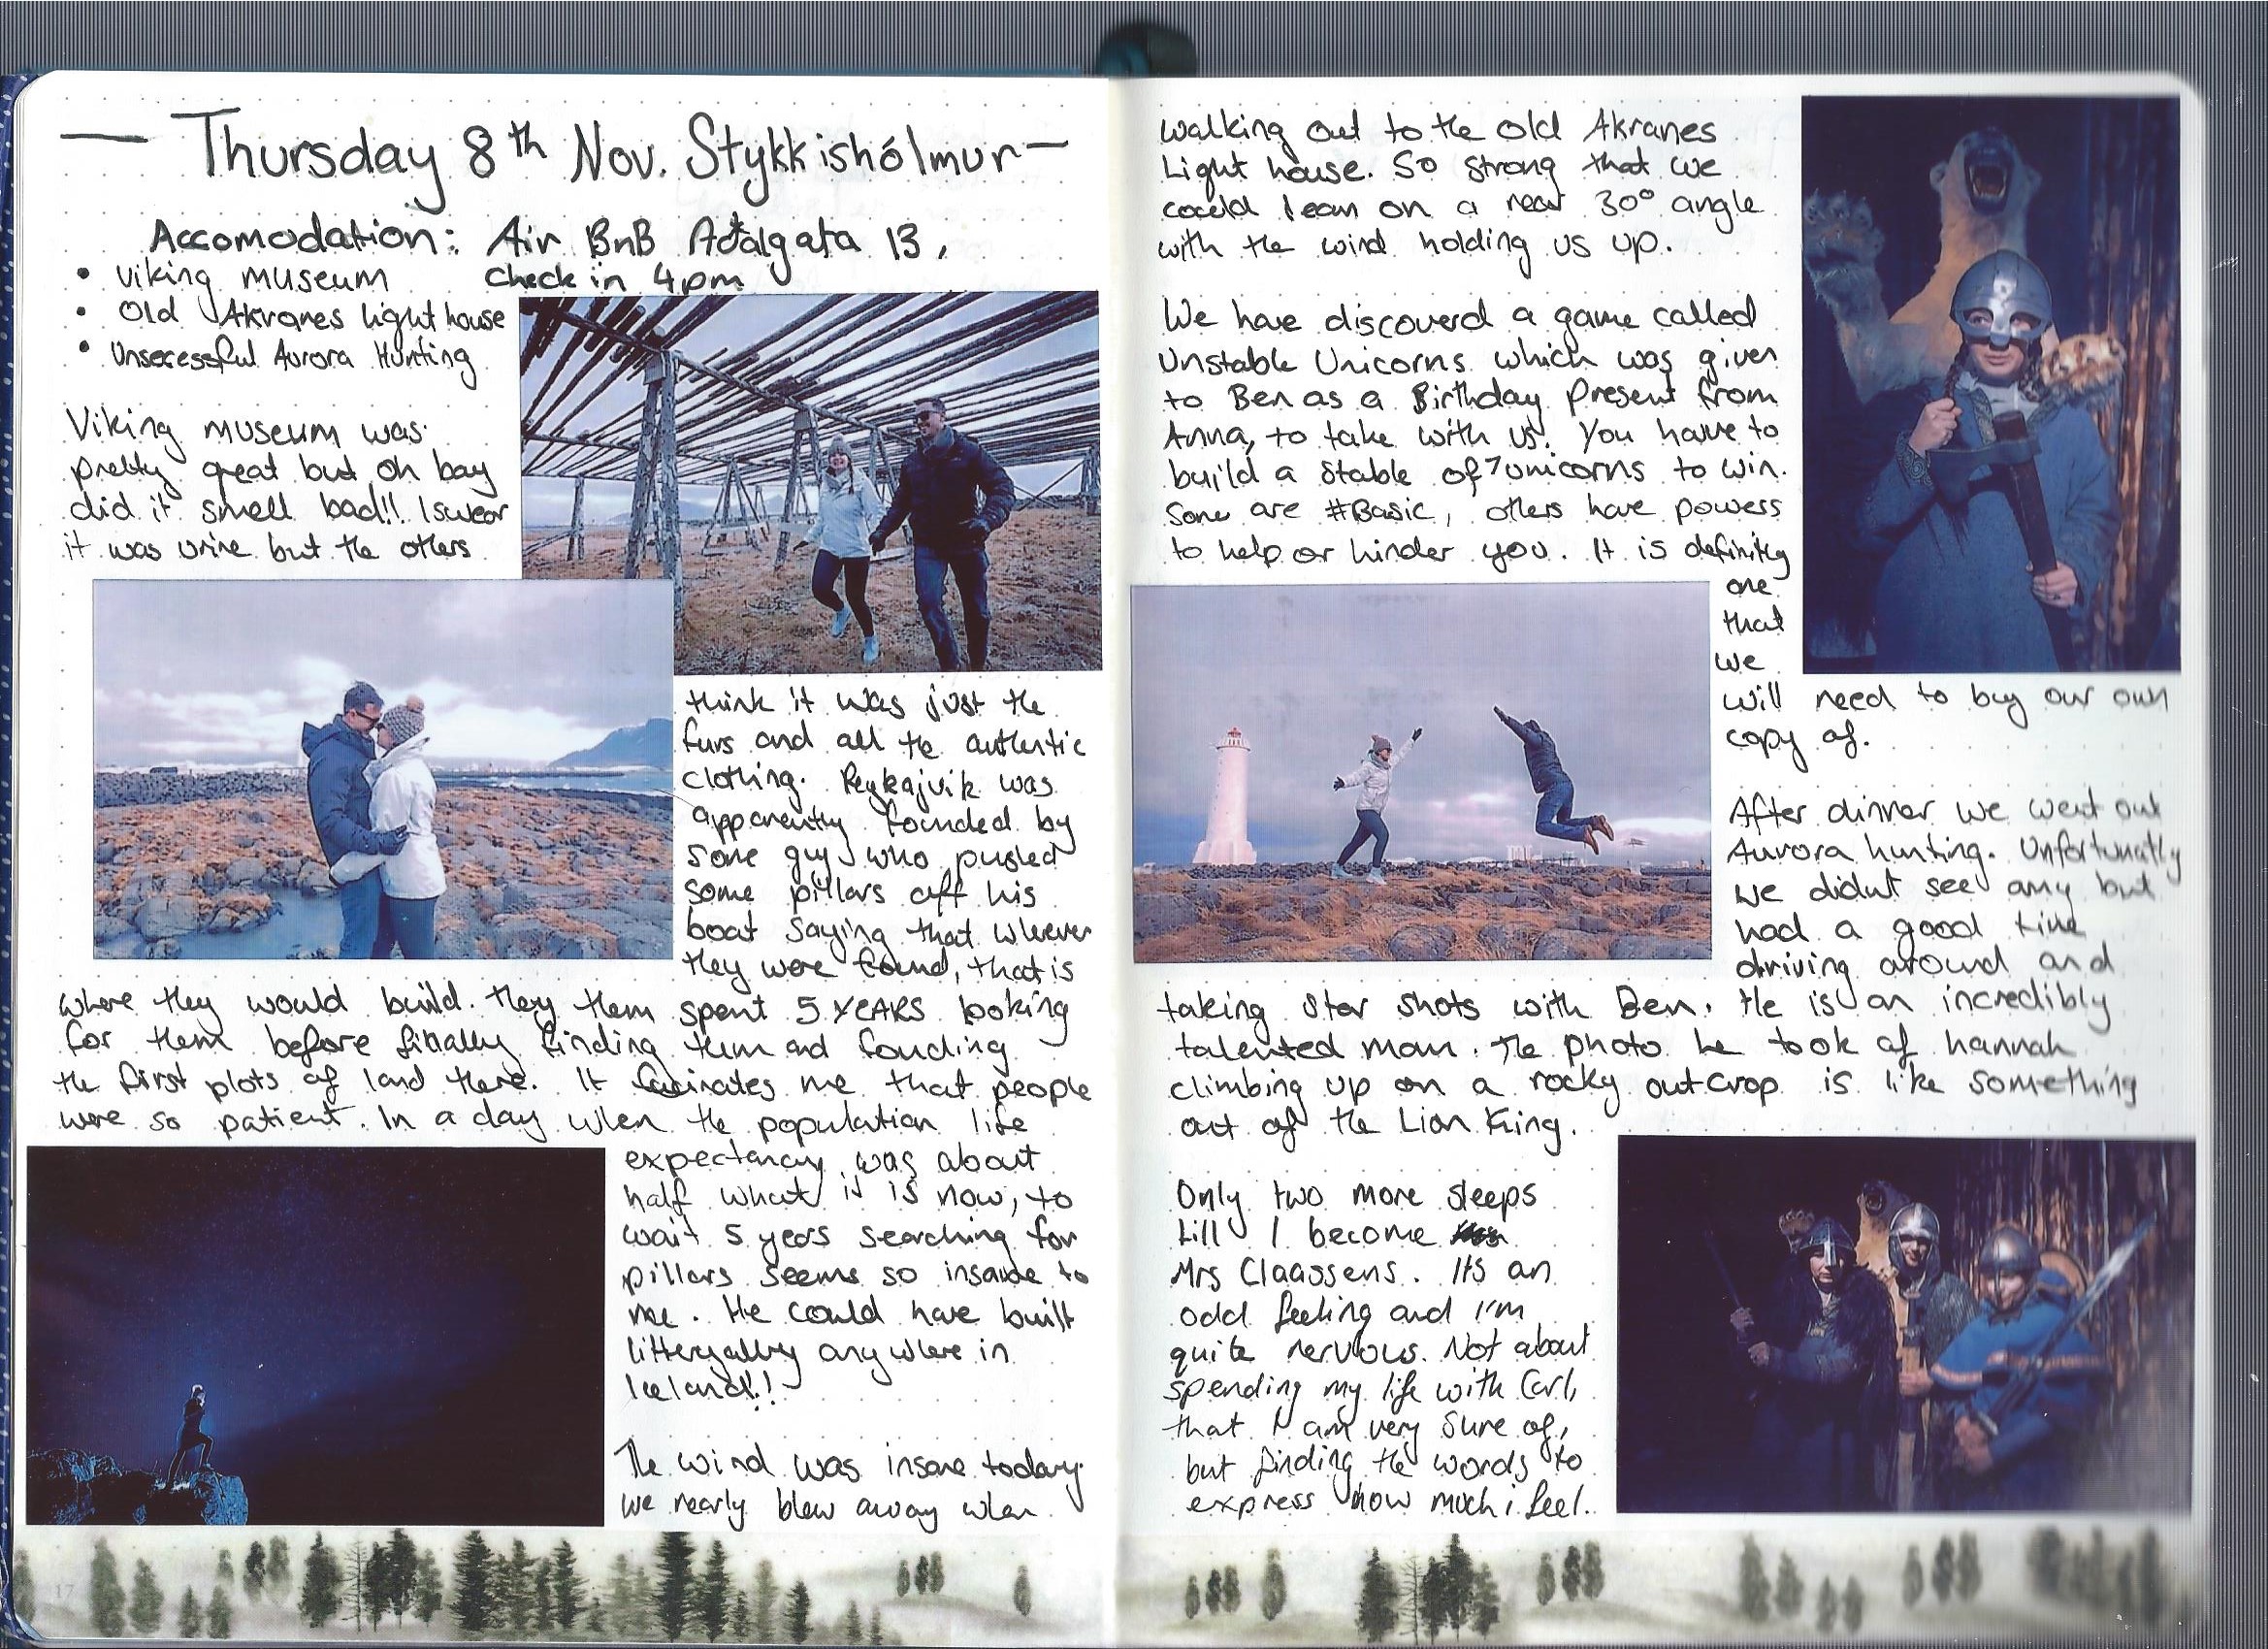 — Thursday 8th Nov. Stykkishólmur —
Accomodation: Air BnB Aðalgata 13,
check in 4pm
• Viking museum
• Old Akranes Light house
• Unsecessful Aurora Hunting
Viking museum was
pretty great but oh boy
did it smell bad!! I swear
it was urine but the others
think it was just the
furs and all the authentic
clothing. Reykajvik was
apparently founded by
some guy who pushed
some pillars off his
boat saying that wherever
they were found, that is
where they would build. They them spent 5 YEARS looking
for them before finally finding them and founding
the first plots of land there. It facinates me that people
were so patient. In a day when the population life
expectancy was about
half what it is now, to
wait 5 years searching for
pillars seems so insane to
me. He could have built
litterally anywhere in
Iceland!!
The wind was insane today.
we nearly blew away when
walking out to the old Akranes
Light house. So strong that we
could lean on a near 30° angle
with the wind holding us up.
We have discoverd a game called
Unstable Unicorns which was given
to Ben as a Birthday Present from
Anna, to take with us. You have to
build a stable of 7 unicorns to win.
Some are #Basic, others have powers
to help or hinder you. It is definitly
one
that
we
will need to buy our own
copy of.
After dinner we went out
Aurora hunting. Unfortunatly
we didnt see any but
had a good time
driving around and
taking star shots with Ben. He is an incredibly
talented man. The photo he took of hannah
climbing up on a rocky outcrop is like something
out of the Lion King.
Only two more sleeps
till I become
Mrs Claassens. Its an
odd feeling and I'm
quite nervous. Not about
spending my life with Carl,
that I am very sure of,
but finding the words to
express how much i feel.
17